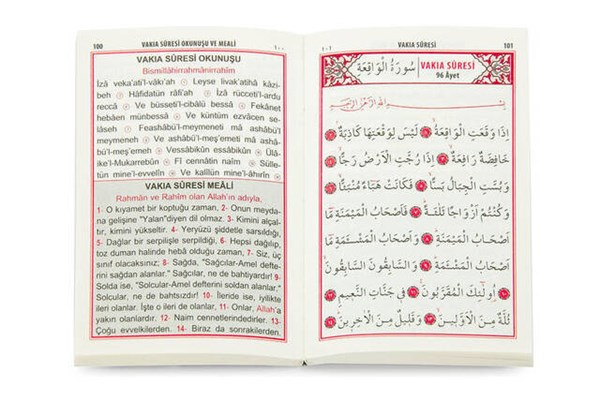 100
VAKIA SÛRESİ OKUNUŞU VE MEALİ
١٠٠
VAKIA SÛRESİ OKUNUŞU
Bismillâhirrahmânirrahîm
İzâ veka'ati'l-vâkı'ah Leyse livak'atihâ kâzi-
beh Hâfidatün râfi'ah İzâ rücceti'l-ardu
reccâ Ve büsseti'l-cibâlü bessâ Fekânet
hebâen münbessâ Ve küntüm ezvâcen se-
lâseh Feashâbü'l-meymeneti mâ ashâbü'l
meymeneh Ve ashâbü'l-meş'emeti mâ ashâbü'l-
meş'emeh Vessâbikûn essâbikûn Ülâ-
ike'l-Mukarrebûn Fî cennâtin naîm Sülle-
tün mine'l-evvelîn Ve kalîlün mine'l-âhırîn
VAKIA SÛRESİ MEÂLİ
Rahmân ve Rahîm olan Allah'ın adıyla,
1- O kıyamet bir koptuğu zaman, 2- Onun meyda-
na gelişine "Yalan"diyen dil olmaz. 3- Kimini alçal-
tır, kimini yükseltir. 4- Yeryüzü şiddetle sarsıldığı,
5- Dağlar bir serpilişle serpildiği. 6- Hepsi dağılıp,
toz duman halinde hebâ olduğu zaman, 7- Siz, üç
sınıf olacaksınız; 8- Sağda, "Sağcılar-Amel defte-
rini sağdan alanlar." Sağcılar, ne de bahtiyardır! 9-
Solda ise, "Solcular-Amel defterini soldan alanlar."
Solcular, ne de bahtsızdır! 10- İleride ise, iyilikte
ileri olanlar. İşte o ileri de olanlar, 11- Onlar, Allah'a
yakın olanlardır. 12- Naim cennetlerindedirler. 13-
Çoğu evvelkilerden. 14- Biraz da sonrakilerden.
١٠١
VAKIA SÛRESİ
101
سُورَةُ الْوَاقِعَةِ
VAKIA SÛRESİ
96 Âyet
بِسْمِ اللّٰهِ الرَّحْمٰنِ الرَّحِيمِ
اِذَا وَقَعَتِ الْوَاقِعَةُ لَيْسَ لِوَقْعَتِهَا كَاذِبَةٌ
خَافِضَةٌ رَافِعَةٌ اِذَا رُجَّتِ الْاَرْضُ رَجًّا
وَبُسَّتِ الْجِبَالُ بَسًّا فَكَانَتْ هَبَاءً مُنْبَثًّا
وَكُنْتُمْ اَزْوَاجًا ثَلٰثَةً فَاَصْحَابُ الْمَيْمَنَةِ مَا
اَصْحَابُ الْمَيْمَنَةِ وَاَصْحَابُ الْمَشْئَمَةِ مَا
اَصْحَابُ الْمَشْئَمَةِ وَالسَّابِقُونَ السَّابِقُونَ
اُولٰئِكَ الْمُقَرَّبُونَ فِي جَنَّاتِ النَّعِيمِ
ثُلَّةٌ مِنَ الْاَوَّلِينَ وَقَلِيلٌ مِنَ الْاٰخِرِينَ